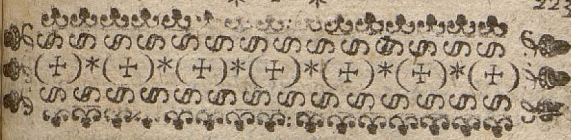 223
(✠)*(✠)*(✠)*(✠)*(✠)*(✠)*(✠)